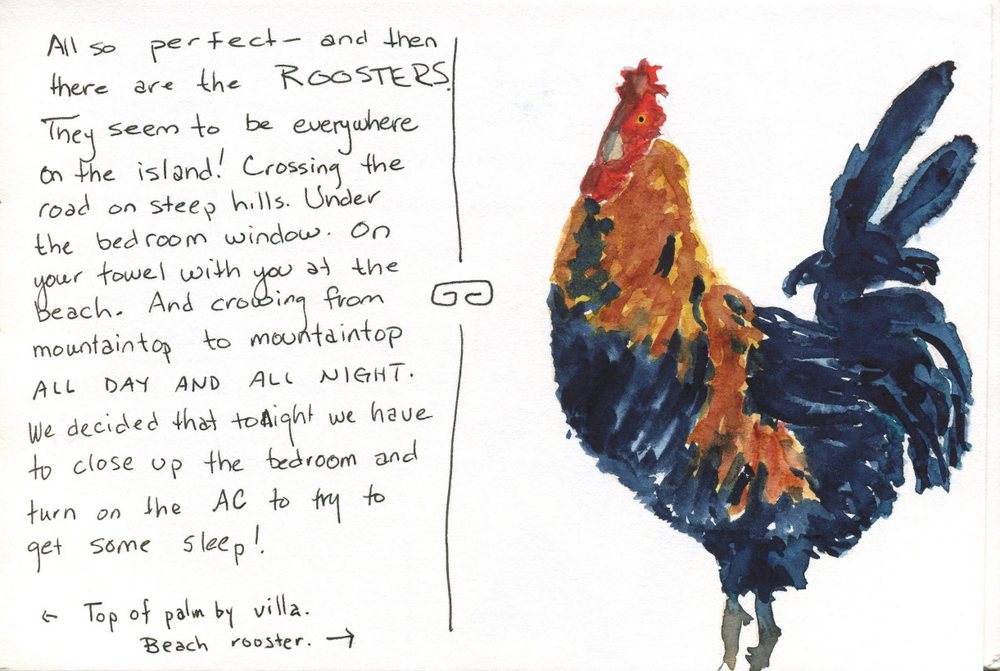 All so perfect — and then
there are the ROOSTERS.
They seem to be everywhere
on the island! Crossing the
road on steep hills. Under
the bedroom window. On
your towel with you at the
beach. And crowing from
mountaintop to mountaintop
ALL DAY AND ALL NIGHT.
We decided that tonight we have
to close up the bedroom and
turn on the AC to try to
get some sleep!
← Top of palm by villa.
Beach rooster. →